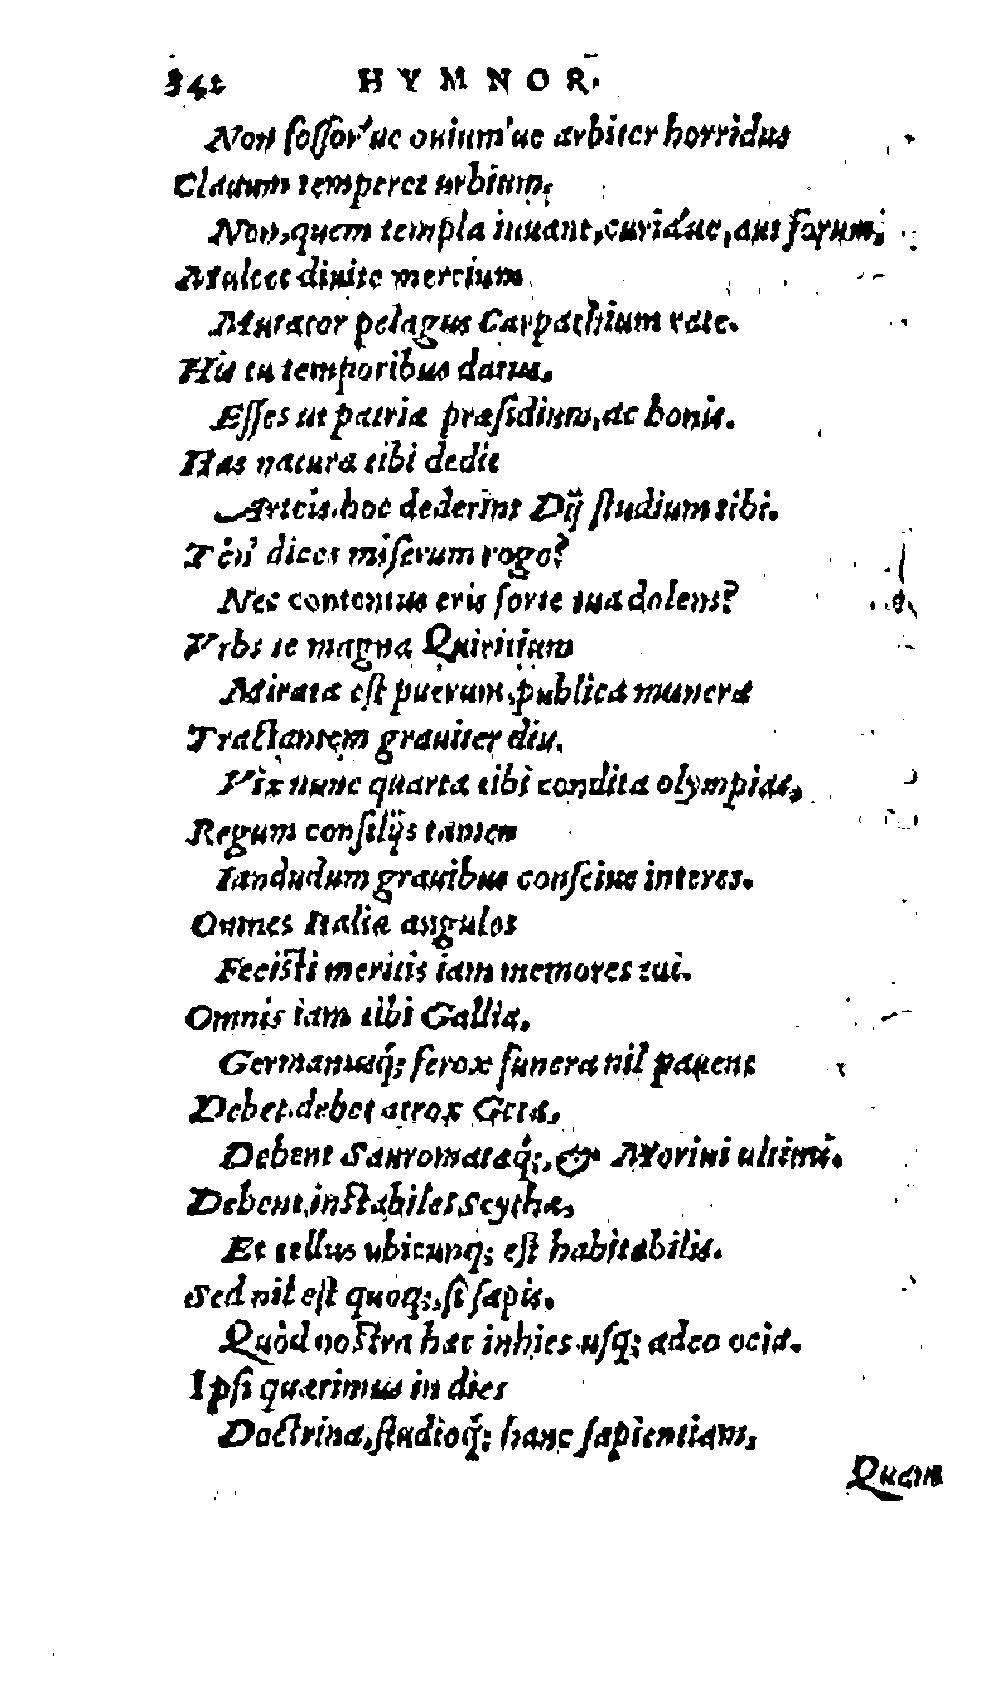 342 HYMNOR.
Non fossor'ue ouium'ue arbiter horridus
Clauum temperet urbium,
Non, quem templa iuuant, curiáue, aut forum,
Mulcet diuite mercium
Mutator pelagus Carpathium rate.
His tu temporibus datus,
Esses ut patriæ præsidium, ac bonis.
Has natura tibi dedit
Arteis, hoc dederint Dij studium tibi.
Téń dicet miserum rogo?
Nec contentus eris sorte tua dolens?
Vrbs te magna Quiritium
Mirata est puerum, publica munera
Tractantem grauiter diu.
Vix nunc quarta tibi condita olympias,
Regum consilijs tamen
Iandudum grauibus conscius interes.
Omnes Italiæ angulos
Fecisti meritis iam memores tui.
Omnis iam tibi Gallia,
Germanusq́; ferox funera nil pauens
Debet, debet atrox Geta,
Debent Sauromatæq́;, & Morini ultimi.
Debent instabiles Scythæ,
Et tellus ubicunq; est habitabilis.
Sed nil est quoq;, si sapis.
Quòd nostra hæc inhies usq; adeo ocia.
Ipsi quærimus in dies
Doctrina, studioq́; hanc sapientiam,
Quam